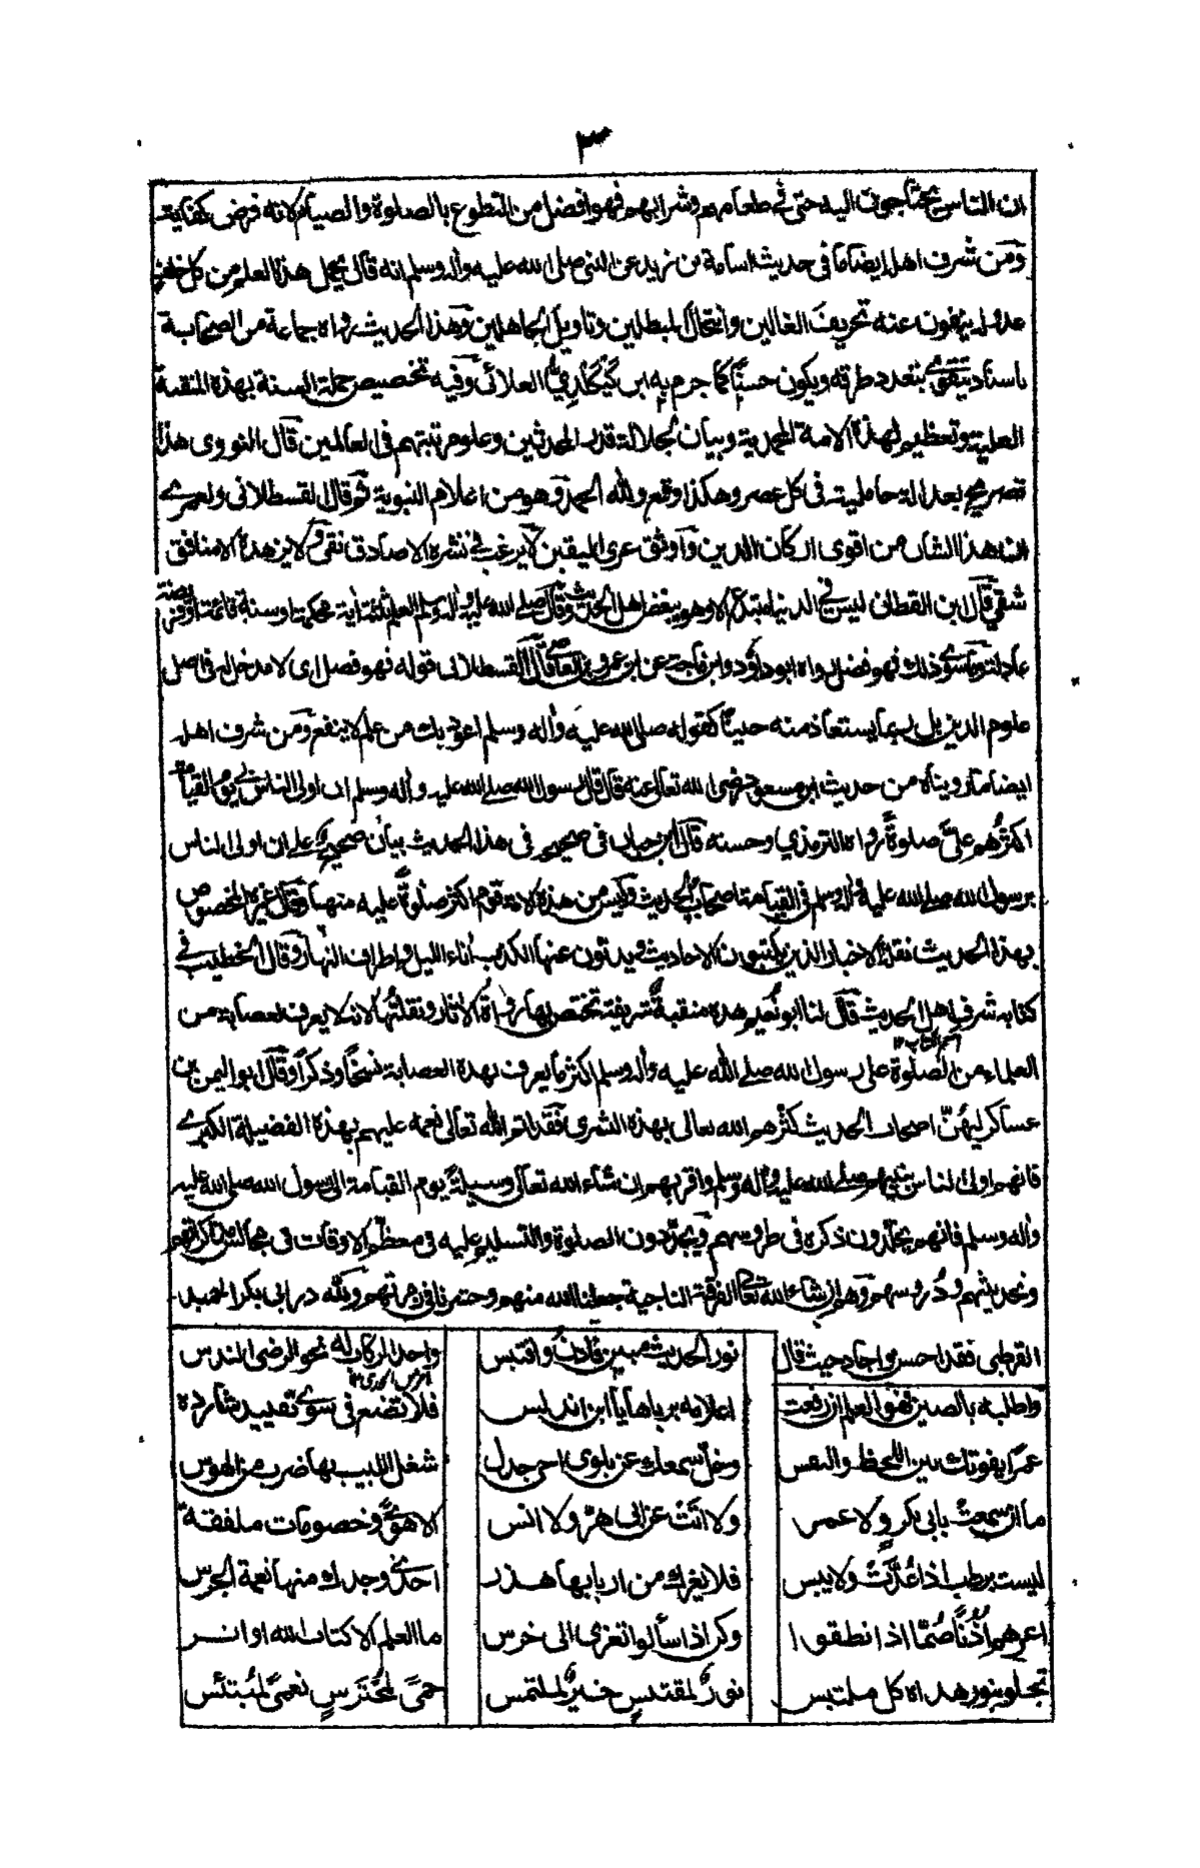 ٣
ان الناس يحتاجون اليه حتى في طعامهم وشرابهم فهو افضل من التطوع بالصلوة والصيام لانه فرض كفاية
ومن شرف اهله ايضا ما فى حديث اسامة بن زيد عن النبى صلى الله عليه وآله وسلم انه قال يحمل هذا العلم من كل خلف
عدوله ينفون عنه تحريف الغالين وانتحال المبطلين وتاويل الجاهلين وهذا الحديث رواه جماعة من الصحابة
باسناد يتقوى بتعدد طرقه ويكون حسنا كما جزم به ابن كيكلدي العلائى وفيه تخصيص حملة السنة بهذه المنقبة
العلية وتعظيم لهذه الامة المحمدية وبيان لجلالة قدر المحدثين وعلو مرتبتهم فى العالمين قال النووى هذا
تصريح بعدالة حامليه فى كل عصر وهكذا وقع ولله الحمد وهو من اعلام النبوية ثم قال القسطلانى ولعمرى
ان هذا الشان من اقوى اركان الدين وأوثق عرى اليقين لا يرغب في نشره الا صادق تقى ولا يزهده الا منافق
شقي قال ابن القطان ليس في الدنيا مبتدع الا وهو يبغض اهل الحديث وقال صلى الله عليه وآله وسلم العلم ثلثة آية محكمة او سنة قائمة او فريضة
عادلة وما سوى ذلك فهو فضل رواه ابو داؤد وابن ماجة عن ابن عمرو بن العاص قال القسطلانى قوله فهو فضل اى لا مدخل له فى اصل
علوم الدين بل ربما يستعاذ منه حينا كقوله صلى الله عليه وآله وسلم اعوذ بك من علم لا ينفع ومن شرف اهله
ايضا ما روينا من حديث ابن مسعود رضى الله تعالى عنه قال قال رسول الله صلى الله عليه وآله وسلم ان اولى الناس بي يوم القيامة
اكثرهم علىّ صلوة رواه الترمذي وحسنه قال ابن حبان فى صحيحه فى هذا الحديث بيان صحيح على ان اولى الناس
برسول الله صلى الله عليه وآله وسلم فى القيامة اصحاب الحديث وليس من هذه الامة قوم اكثر صلوة عليه منهم وقال غيره المخصوص
بهذا الحديث نقلة الاخبار الذين يكتبون الاحاديث ويذبون عنها الكذب أناء الليل واطراف النهار وقال الخطيب في
كتابه شرف اهل الحديث قال لنا ابو نعيم هذه منقبة شريفة تختص بها رواة الأثار ونقلتها لانه لا يعرف لعصابة من
اسم الكتاب ١٢
العلماء من الصلوة على رسول الله صلى الله عليه وآله وسلم اكثر ما يعرف لهذه العصابة نسخا وذكرا وقال ابو اليمن بن
عساكر ليهن اصحاب الحديث كثرهم الله تعالى بهذه البشرى فقد اتم الله تعالى نعمه عليهم بهذه الفضيلة الكبرى
فانهم اولى الناس بنبيهم صلى الله عليه وآله وسلم واقربهم ان شاء الله تعالى وسيلة يوم القيامة الى رسول الله صلى الله عليه
وآله وسلم فانهم يخلدون ذكره فى طروسهم ويجددون الصلوة والتسليم عليه فى معظم الاوقات فى مجالس مذاكراتهم
وتحديثهم ودروسهم وهم ان شاء الله تعالى الفرقة الناجية جعلنا الله منهم وحشرنا فى زمرتهم ولله در ابى بكر الحميد
القرطبى فقد احسن واجاد حيث قال نور الحديث مبين فادن واقتبس واحد الركاب له نحو الرضى الندس
واطلبه بالصين فهو العلم ان رفعت اعلامه برباها يا ابن اندلس فلا تضع فى سوى تقييد شارده
عمرا يفوتك بين اللحظ والنفس وخل سمعك عن بلوى اخى جدل شغل اللبيب بها ضرب من الهوس
ما ان سمعت بابى بكر ولا عمر ولا اتت عن ابى هر ولا انس الا هوى وخصومات ملفقة
ليست برطب اذا عدت ولا يبس فلا يغرك من اربابها هذر احذى وجدك منها نغمة الجرس
اعرهم أذنا صما اذا نطقوا وكن اذا سألوا تعزى الى خرس ما العلم الا كتاب الله او اثر
تجلو بنور هداه كل ملتبس نور لمقتبس خير لملتمس حمى لمحترس نعمى لمبتئس